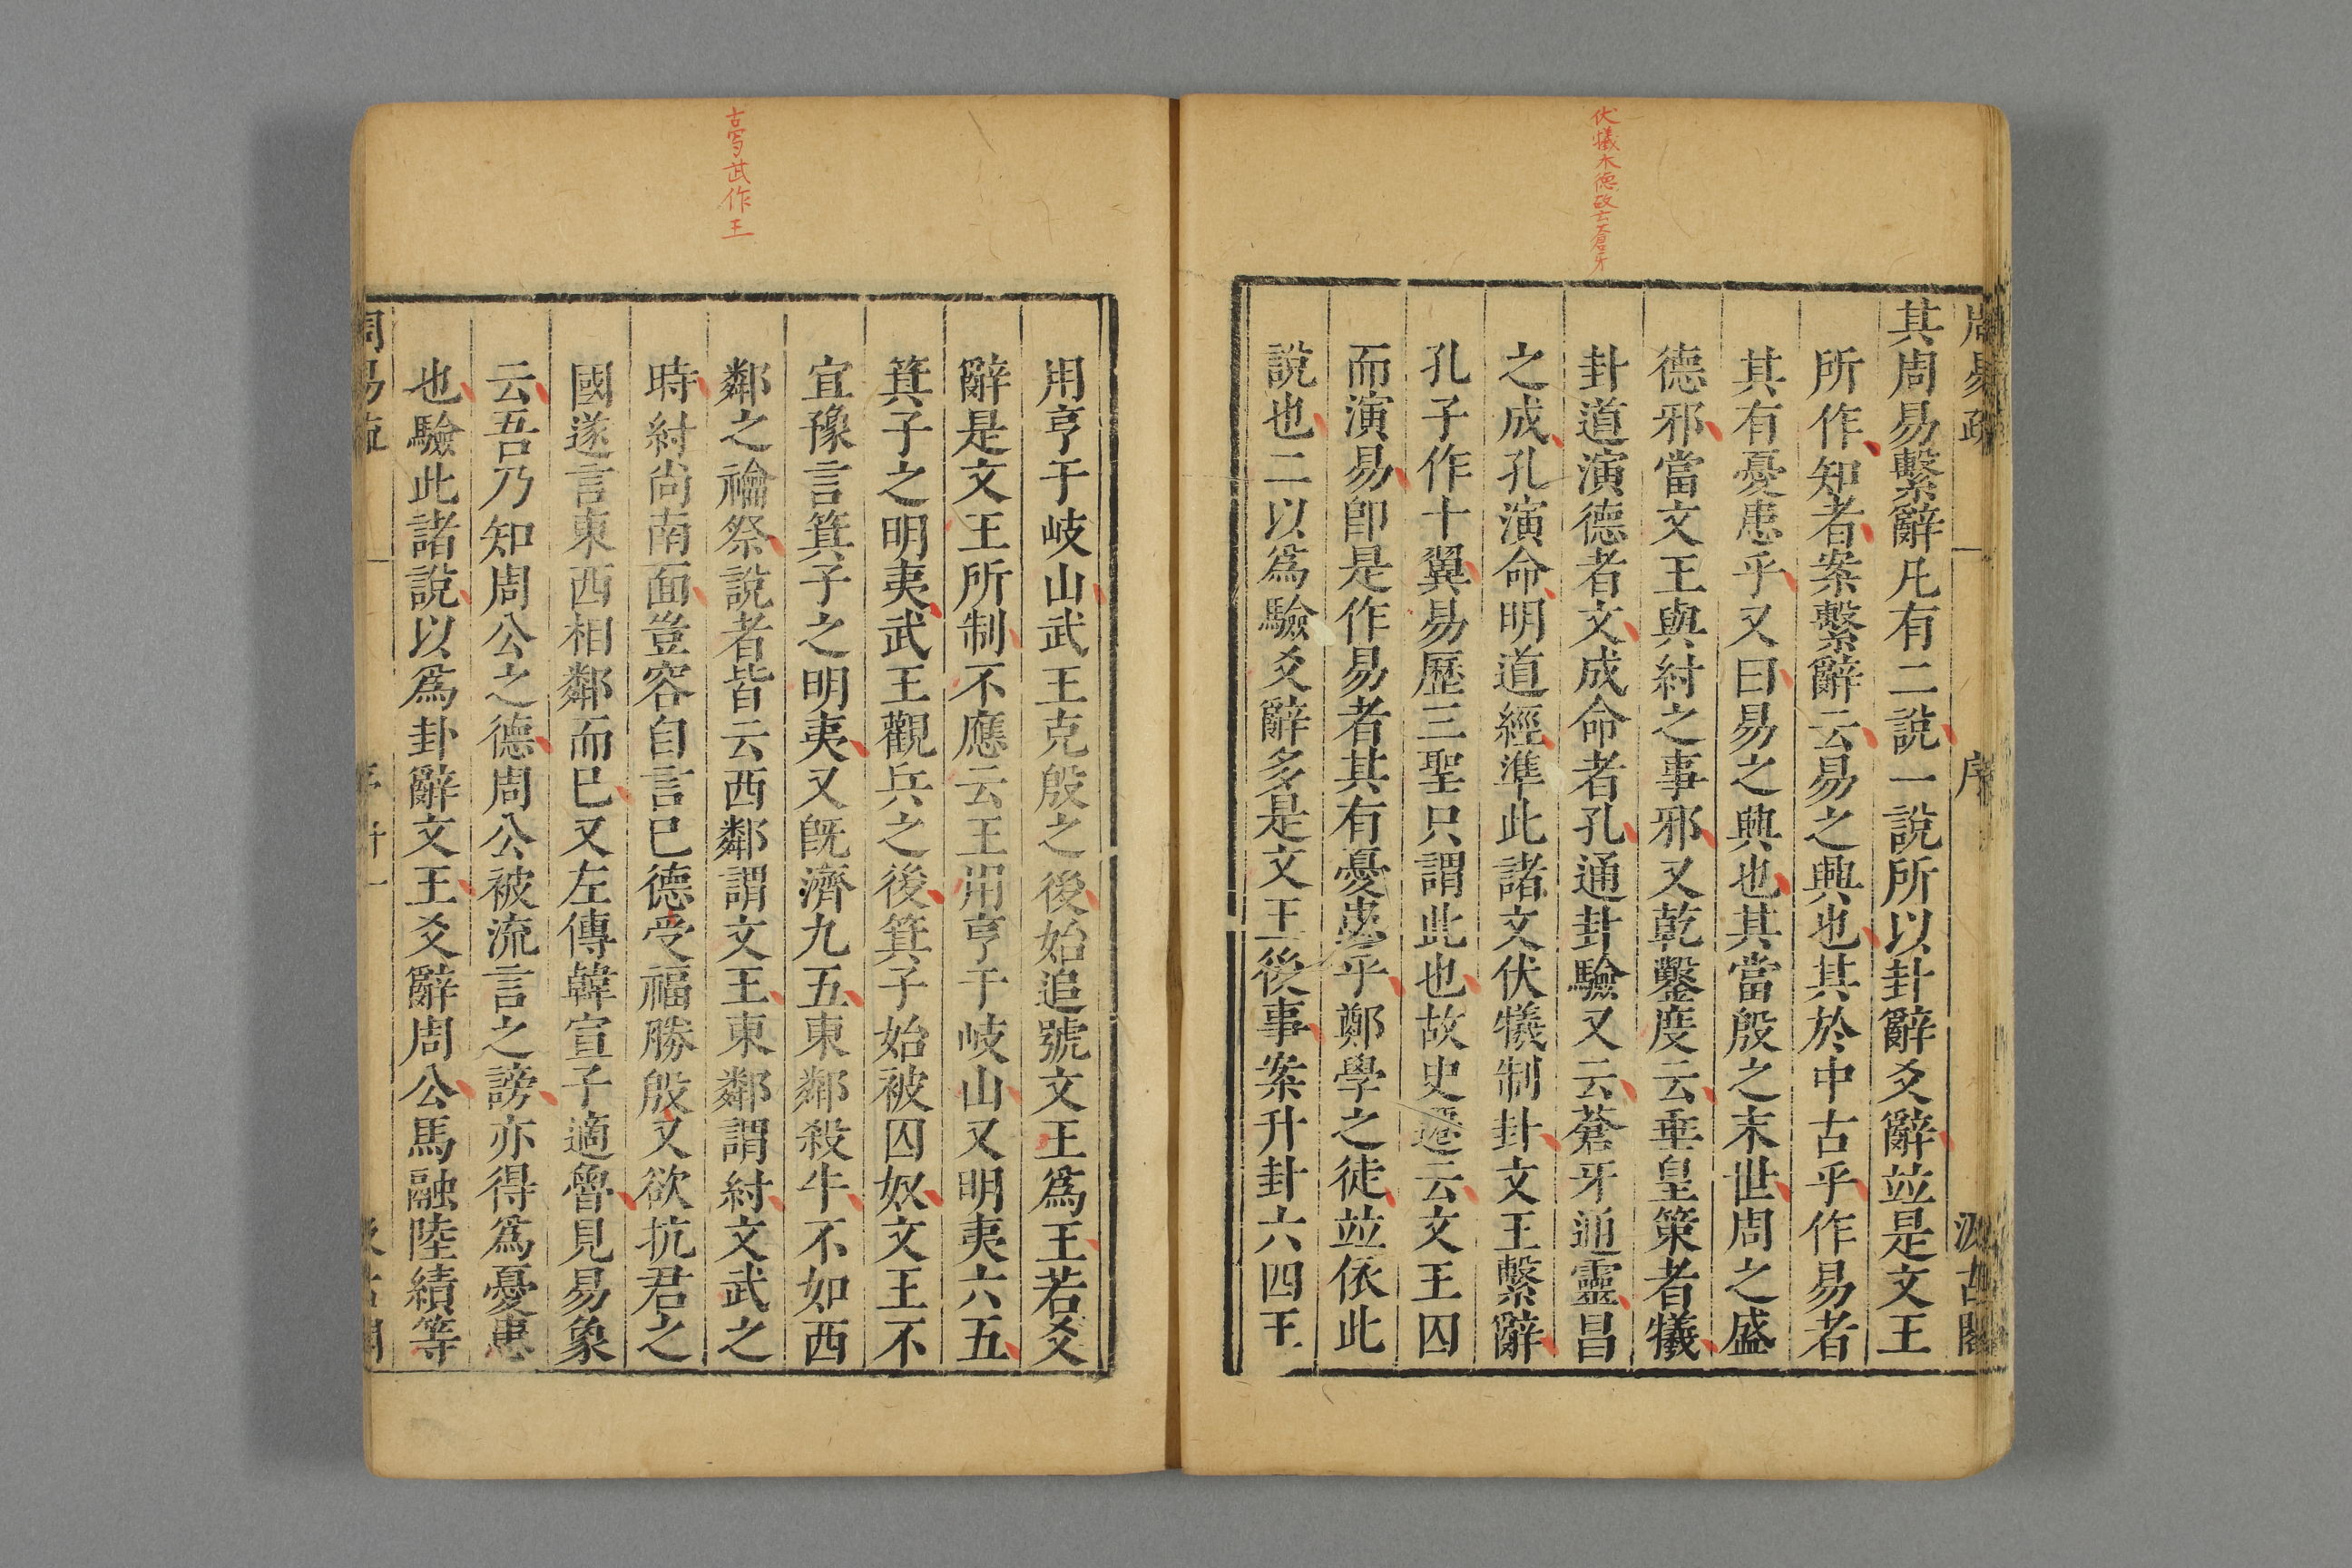 伏犧木德故云蒼牙
周易疏 序 汲古閣
其周易繫辭凡有二說一說所以卦辭爻辭並是文王
所作知者案繫辭云易之興也其於中古乎作易者
其有憂患乎又曰易之興也其當殷之末世周之盛
德邪當文王與紂之事邪又乾鑿度云垂皇策者犧
卦道演德者文成命者孔通卦驗又云蒼牙通靈昌
之成孔演命明道經準此諸文伏犧制卦文王繫辭
孔子作十翼易歷三聖只謂此也故史遷云文王囚
而演易卽是作易者其有憂患乎鄭學之徒並依此
說也二以爲驗爻辭多是文王後事案升卦六四王
古寫武作王
用亨于岐山武王克殷之後始追號文王爲王若爻
辭是文王所制不應云王用亨于岐山又明夷六五
箕子之明夷武王觀兵之後箕子始被囚奴文王不
宜豫言箕子之明夷又旣濟九五東鄰殺牛不如西
鄰之禴祭說者皆云西鄰謂文王東鄰謂紂文武之
時紂尚南面豈容自言已德受福勝殷又欲抗君之
國遂言東西相鄰而巳又左傳韓宣子適魯見易象
云吾乃知周公之德周公被流言之謗亦得爲憂患
也驗此諸說以爲卦辭文王爻辭周公馬融陸績等
周易疏